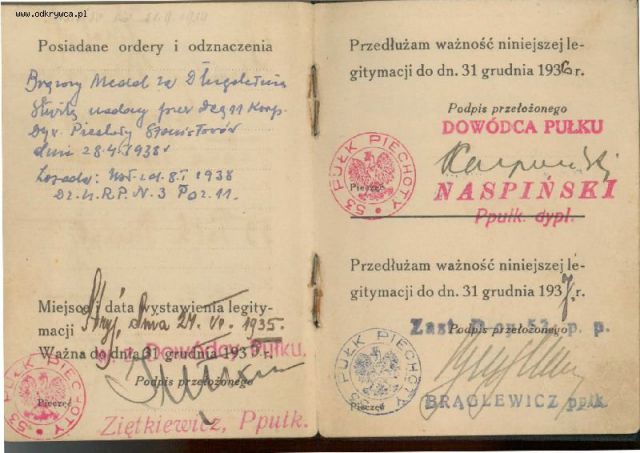 www.odkrywca.pl
Posiadane ordery i odznaczenia
Brązowy Medal za Długoletnią
Służbę nadany przez Dcę 11 Karp.
Dyw. Piechoty Stanisławów
dnia 28.4.1938 r
8.I 1938
Dz. U. R.P. N. 3 Poz. 11.
Miejsce i data wystawienia legity-
macji Stryj, dnia 24. VI. 1935.
Ważna do dnia 31 grudnia 1935 r.
w. z. Dowódcy Pułku.
Podpis przełożonego
Pieczęć
53 PUŁK PIECHOTY
Ziętkiewicz, Ppułk.
Przedłużam ważność niniejszej le-
gitymacji do dn. 31 grudnia 1936 r.
Podpis przełożonego
DOWÓDCA PUŁKU
53 PUŁK PIECHOTY
Pieczęć
NASPIŃSKI
Ppułk. dypl.
Przedłużam ważność niniejszej le-
gitymacji do dn. 31 grudnia 1937 r.
Zast. D-cy 53 p. p.
Podpis przełożonego
53 PUŁK PIECHOTY
Pieczęć
BRĄGLEWICZ ppłk.